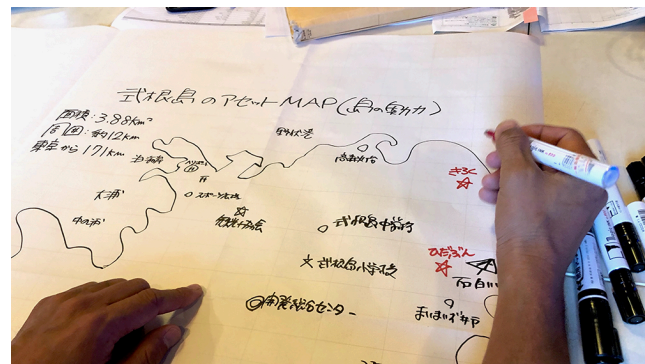 式根島のアセットMAP(島の魅力)
面積:3.88km²
周囲:約12km
東京から171km
野伏港
泊海岸
高森灯台
きろく
大浦
スポーツ広場
中の浦
観光協会
式根島中学校
ひだぶん
式根島小学校
石白川
開発総合センター
まいまいず井戸